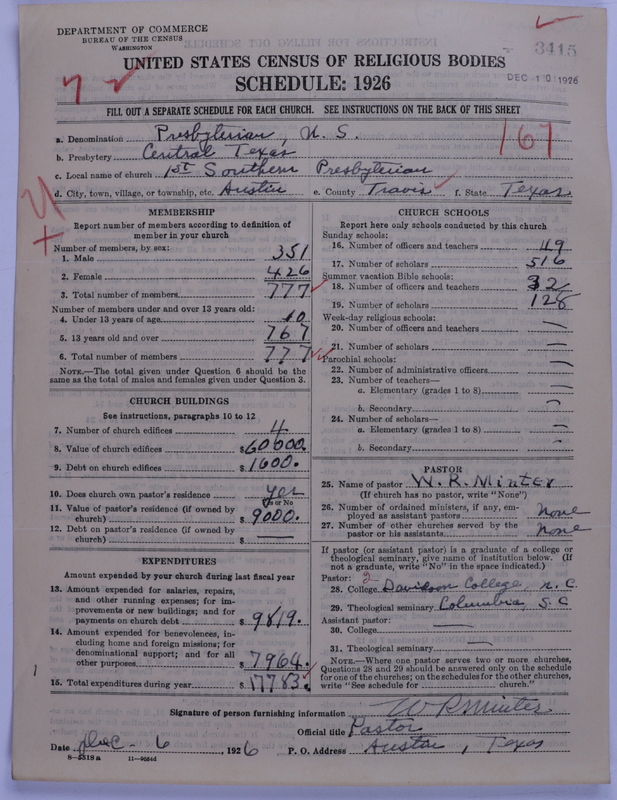 DEPARTMENT OF COMMERCE
BUREAU OF THE CENSUS
WASHINGTON
3415
DEC 10 1926
UNITED STATES CENSUS OF RELIGIOUS BODIES
SCHEDULE: 1926
FILL OUT A SEPARATE SCHEDULE FOR EACH CHURCH. SEE INSTRUCTIONS ON THE BACK OF THIS SHEET
167
a. Denomination Presbyterian, U. S.
b. Presbytery Central Texas
c. Local name of church 1st Southern Presbyterian
d. City, town, village, or township, etc. Austin e. County Travis f. State Texas
MEMBERSHIP
Report number of members according to definition of
member in your church
Number of members, by sex:
1. Male 351
2. Female 426
3. Total number of members 777
Number of members under and over 13 years old:
4. Under 13 years of age 10
5. 13 years old and over 767
6. Total number of members 777
NOTE.—The total given under Question 6 should be the
same as the total of males and females given under Question 3.
CHURCH BUILDINGS
See instructions, paragraphs 10 to 12
7. Number of church edifices 4
8. Value of church edifices $60000.
9. Debt on church edifices $1600.
10. Does church own pastor's residence yes
Yes or No
11. Value of pastor's residence (if owned by
church) $9000.
12. Debt on pastor's residence (if owned by
church) $ —
EXPENDITURES
Amount expended by your church during last fiscal year
13. Amount expended for salaries, repairs,
and other running expenses; for im-
provements or new buildings; and for
payments on church debt $9819.
14. Amount expended for benevolences, in-
cluding home and foreign missions; for
denominational support; and for all
other purposes $7964.
15. Total expenditures during year $17783.
CHURCH SCHOOLS
Report here only schools conducted by this church
Sunday schools:
16. Number of officers and teachers 49
17. Number of scholars 516
Summer vacation Bible schools:
18. Number of officers and teachers 32
19. Number of scholars 128
Week-day religious schools:
20. Number of officers and teachers —
21. Number of scholars —
Parochial schools:
22. Number of administrative officers —
23. Number of teachers—
a. Elementary (grades 1 to 8) —
b. Secondary —
24. Number of scholars—
a. Elementary (grades 1 to 8) —
b. Secondary —
PASTOR
25. Name of pastor W. R. Minter
(If church has no pastor, write "None")
26. Number of ordained ministers, if any, em-
ployed as assistant pastors None
27. Number of other churches served by the
pastor or his assistants None
If pastor (or assistant pastor) is a graduate of a college or
theological seminary, give name of institution below. (If
not a graduate, write "No" in the space indicated.)
Pastor: 2
28. College Davidson College N. C.
29. Theological seminary Columbia, S. C
Assistant pastor:
30. College —
31. Theological seminary —
NOTE.—Where one pastor serves two or more churches,
Questions 28 and 29 should be answered only on the schedule
for one of the churches; on the schedules for the other churches,
write "See schedule for church."
Signature of person furnishing information W R Minter
Official title Pastor
Date Dec - 6, 1926 P. O. Address Austin, Texas
8—5518a 11—9664d